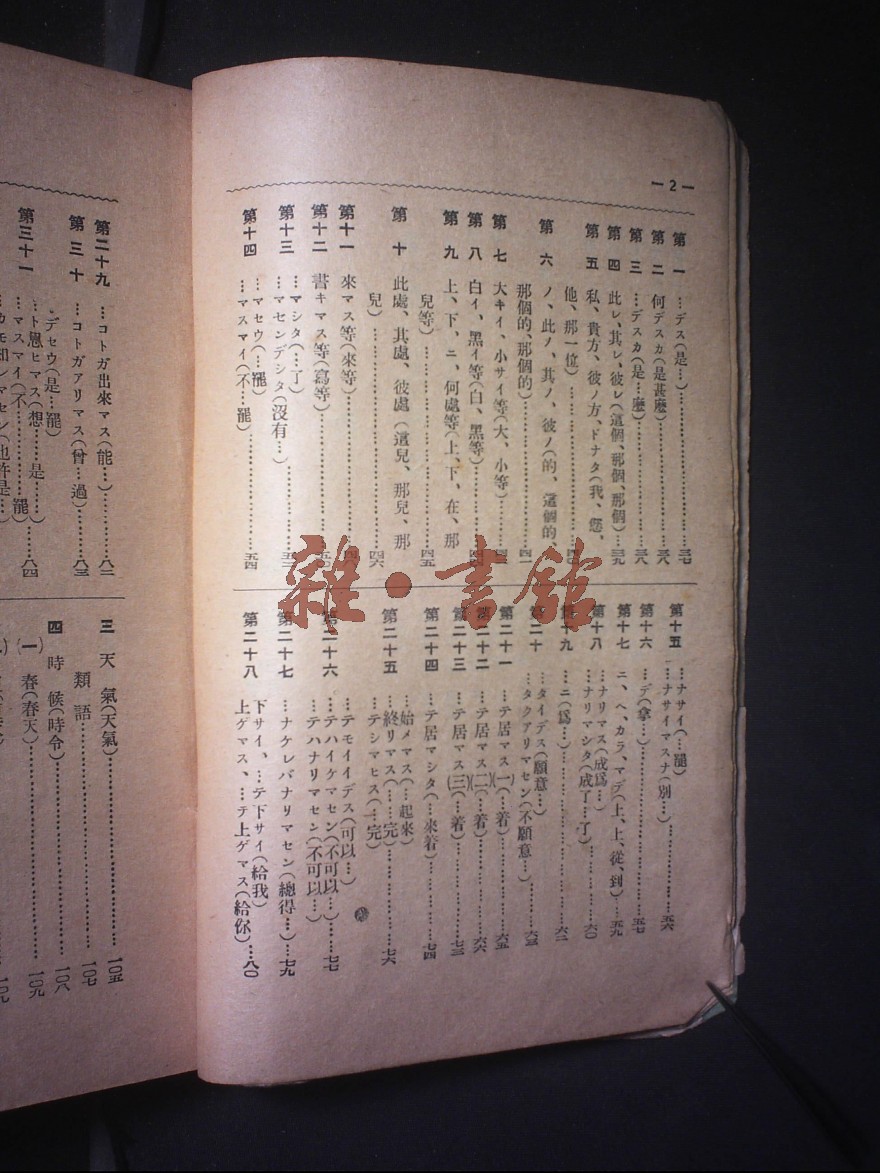 — 2 —
第一 …デス(是…)……三七
第二 何デスカ(是甚麽)……三八
第三 …デスカ(是…麽)……三八
第四 此レ、其レ、彼レ(這個、那個、那個)…三九
第五 私、貴方、彼ノ方、ドナタ(我、您、
他、那一位)……四〇
第六 ノ、此ノ、其ノ、彼ノ(的、這個的、
那個的、那個的)……四一
第七 大キイ、小サイ等(大、小等)……
第八 白イ、黒イ等(白、黑等)……
第九 上、下、ニ、何處等(上、下、在、那
兒等)……四五
第十 此處、其處、彼處(這兒、那兒、那
兒)……四六
第十一 來マス等(來等)……
第十二 書キマス等(寫等)……
第十三 …マシタ(…了)……
…マセンデシタ(沒有…)
第十四 …マセウ(…罷)
…マスマイ(不…罷)……五四
第十五 …ナサイ(…罷)
…ナサイマスナ(別…)……五六
第十六 …デ(拿…)……五七
第十七 ニ、ヘ、カラ、マデ(上、上、從、到)…五九
第十八 …ナリマス(成爲…)
…ナリマシタ(成了…了)……六〇
第十九 …ニ(爲…)……六二
第二十 …タイデス(願意…)
…タクアリマセン(不願意…)……六三
第二十一 …テ居マス(一)(…着)……六五
第二十二 …テ居マス(二)(…着)……六六
第二十三 …テ居マス(三)(…着)……七三
第二十四 …テ居マシタ(…來着)……七四
第二十五 …始メマス(…起來)
…終リマス(…完)
…テシマヒス(…完)……七六
第二十六 …テモイイデス(可以…)
…テハイケマセン(不可以…)……七七
…テハナリマセン(不可以…)
第二十七 …ナケレバナリマセン(總得…)…七九
第二十八 下サイ、…テ下サイ(給我)
上ゲマス、…テ上ゲマス(給你)…八〇
第二十九 …コトガ出來マス(能…)……八二
第三十 …コトガアリマス(曾…過)……八三
第三十一 …デセウ(是…罷)
…ト思ヒマス(想…是…)
…マスマイ(不…罷)……八四
三 天氣(天氣)……一〇五
類語……一〇七
四 時候(時令)……一〇八
(一)春(春天)……一〇九
雜・書館